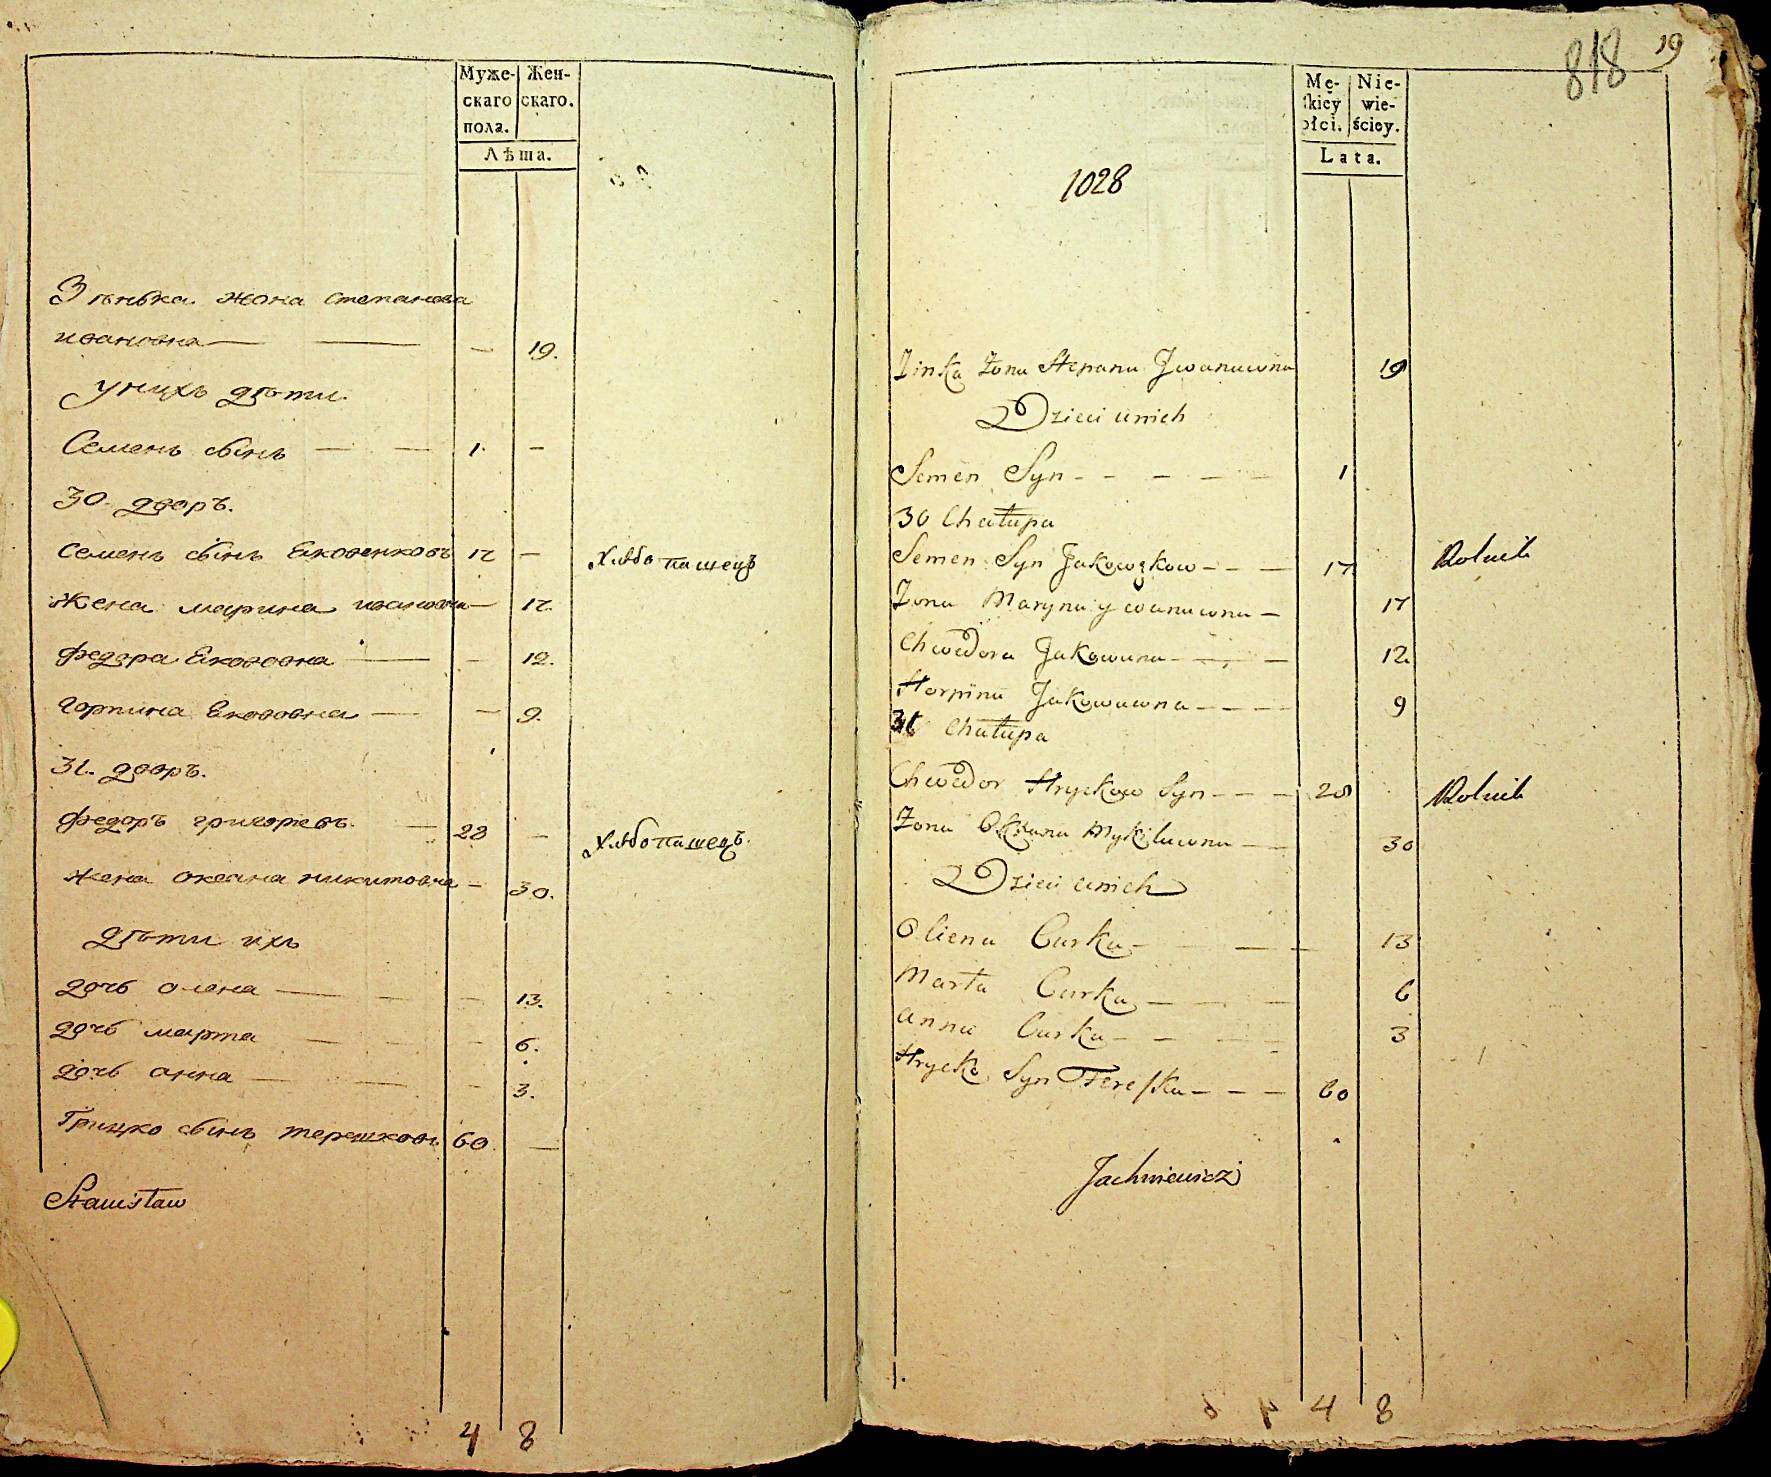 Муже-
скаго
пола.
Жен-
скаго.
Лѣта.
Зѣнька жена степанова
ивановна — — — 19.
у нихъ дѣти.
Семенъ сынъ — — 1. —
30. дворъ.
Семенъ сынъ Яковенковъ 17 — Хлѣбопашецъ
жена марина ивановна — 17.
федора Якововна — — 12.
горпина Якововна — — 9.
31. дворъ.
федоръ григорьевъ — 28 — Хлѣбопашецъ
жена оксана никитовна — 30.
дѣти ихъ
дочь олена — — — 13.
дочь марта — — — 6.
дочь анна — — — 3.
Грицко сынъ терешковъ 60 —
Stanisław
4 8
818 19
Mę-
skiey
płci.
Nie-
wie-
ściey.
Lata.
1028
Zinka Żona Stepana Jwanuwna 19
Dzieci u nich
Semen Syn - - - - - 1
30 Chałupa
Semen Syn Jakowzkow - - - 17 Rolnik
Żona Maryna ywanuwna - 17
Chwedora Jakowuwna - - - 12
Horpina Jakowuwna - - - - 9
31 Chałupa
Chwedor Hryckow Syn - - - 28 Rolnik
Żona Oxana Mykiluwna — 30
Dzieci u nich
Oliena Curka - - - 13
Marta Curka - - - 6
Anna Curka - - - - 3
Hrycko Syn Tereszka - - - 60
Jachniewicz
4 8